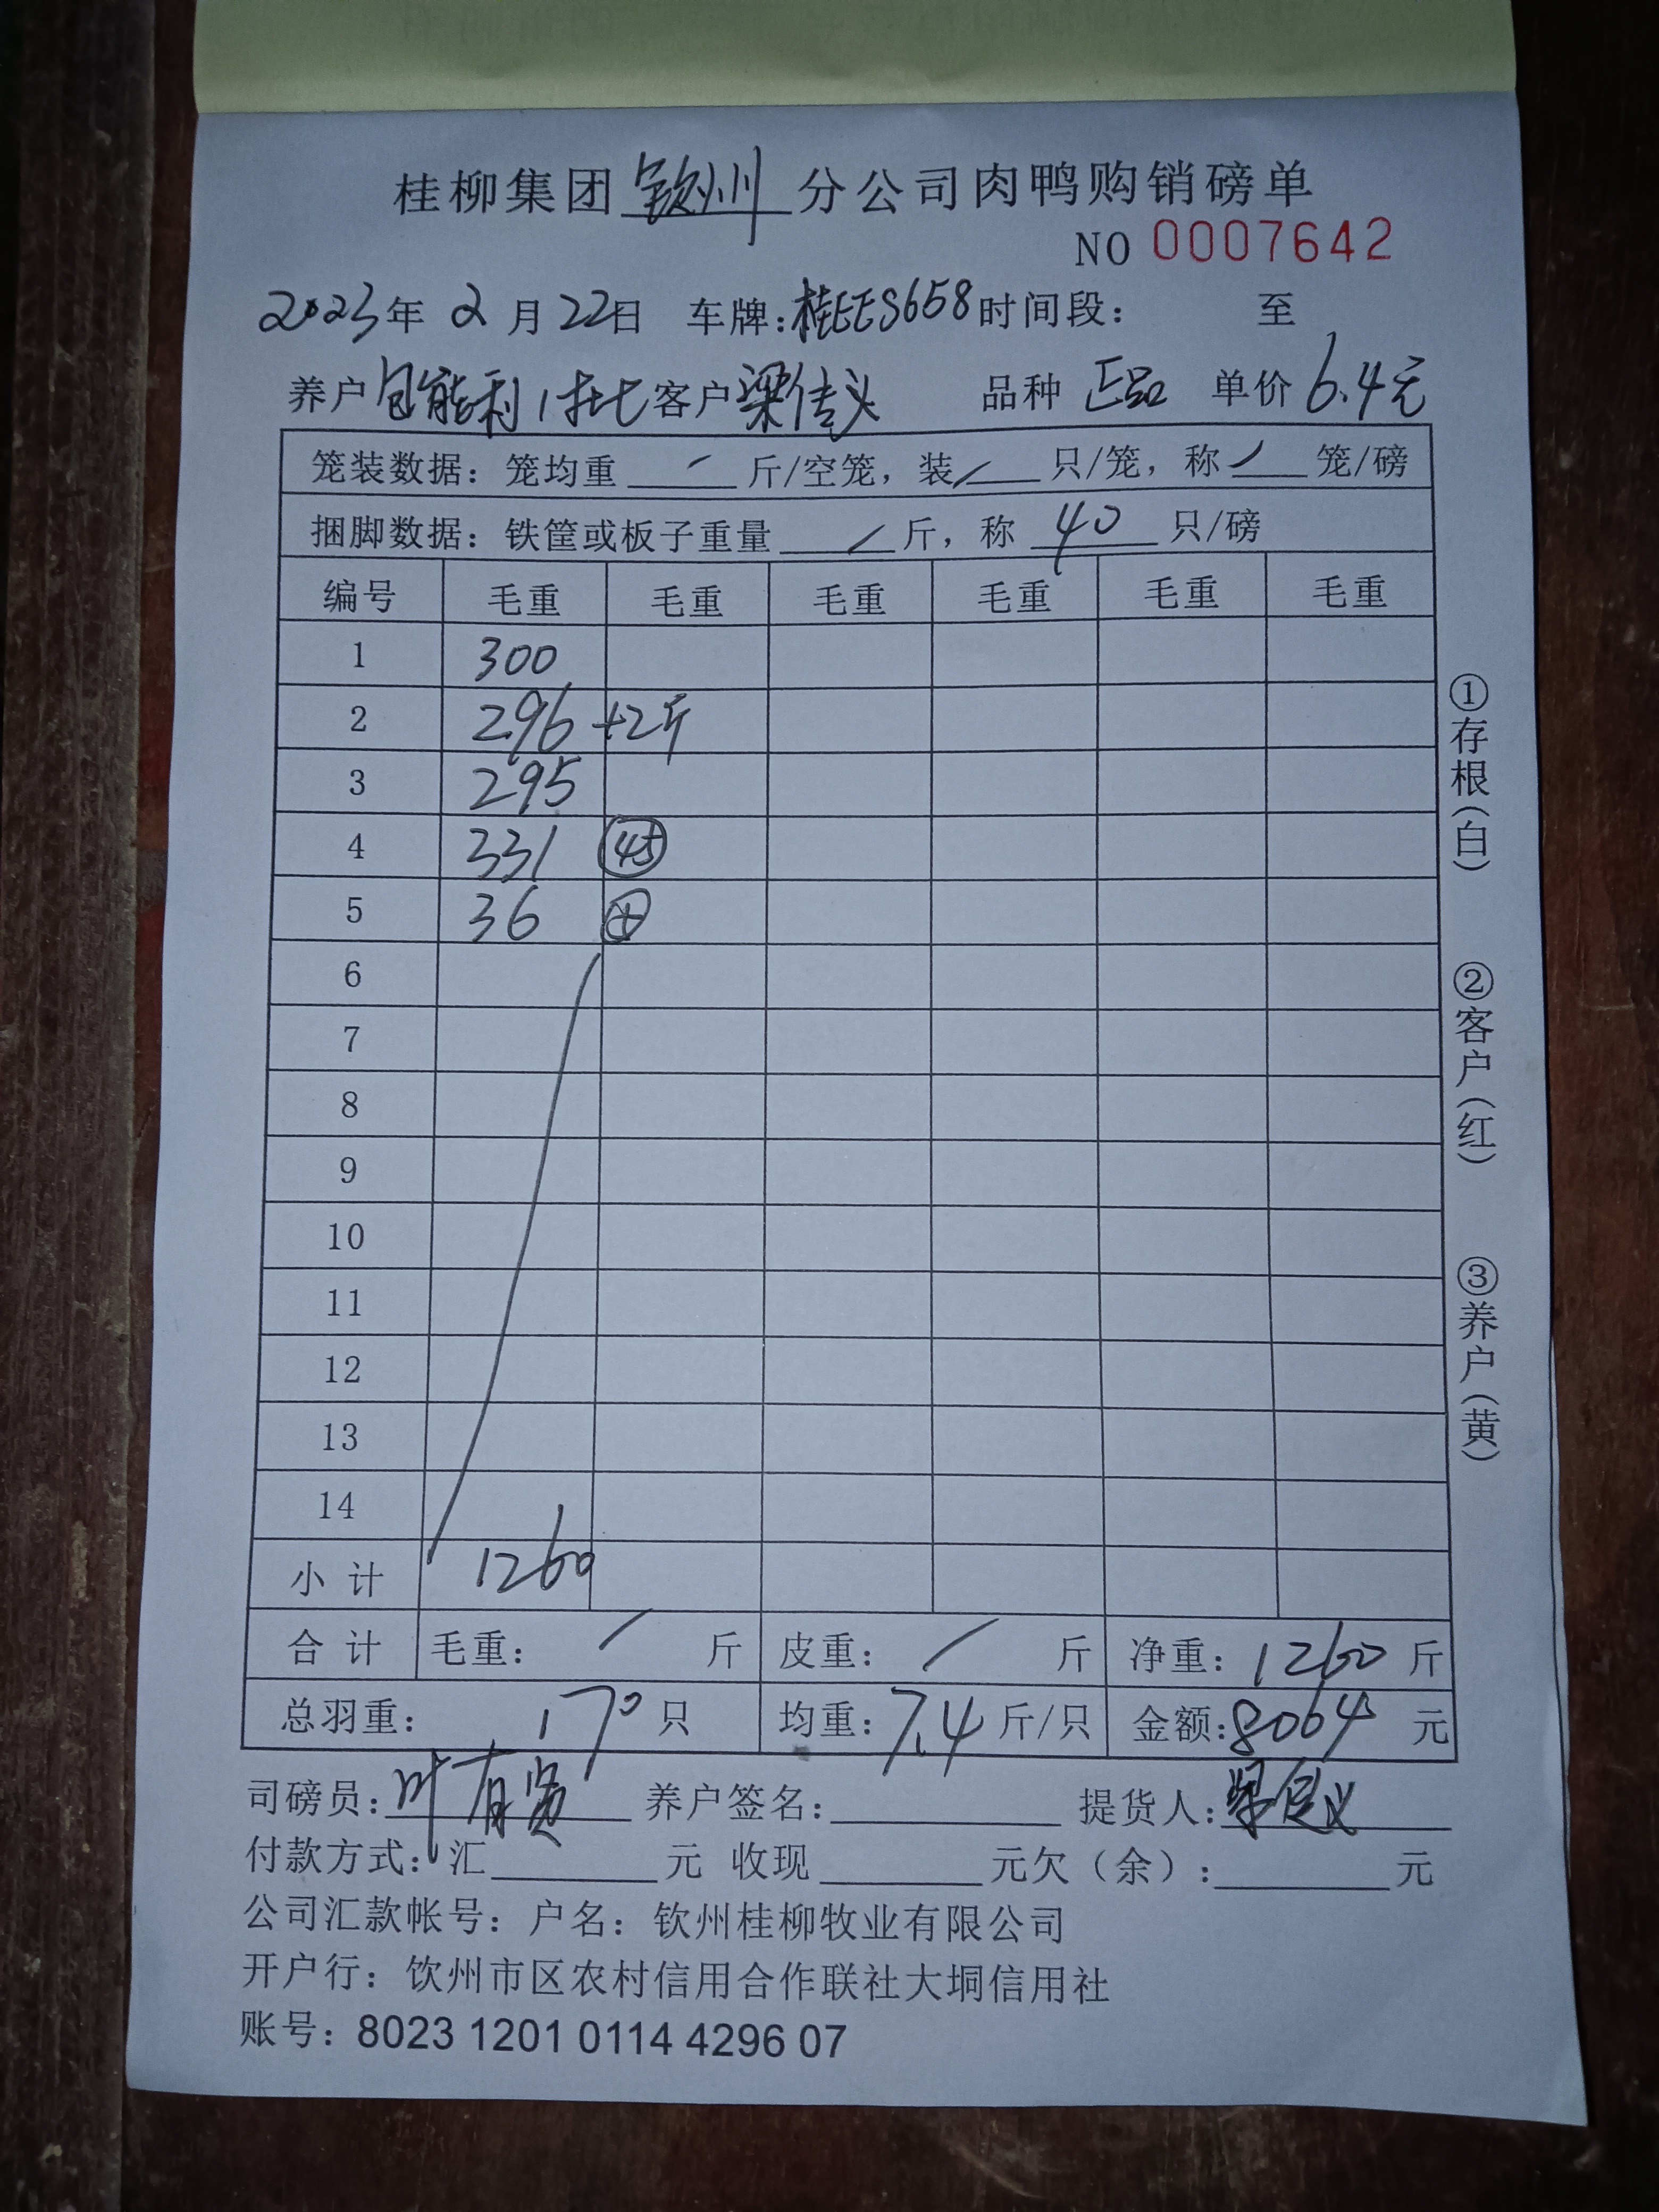 桂柳集团钦州分公司肉鸭购销磅单
NO 0007642
2023年 2月 22日 车牌:桂EES658 时间段: 至
养户 包能利 客户 梁传义 品种 正品 单价 6.4元
笼装数据: 笼均重 / 斤/空笼, 装 / 只/笼, 称 / 笼/磅
捆脚数据: 铁筐或板子重量 / 斤, 称 40 只/磅
编号 毛重 毛重 毛重 毛重 毛重 毛重
1 300
2 296 +2斤
3 295
4 331 45
5 36
6
7
8
9
10
11
12
13
14
小计 1260
合计 毛重: / 斤 皮重: / 斤 净重: 1260 斤
总羽重: 170 只 均重: 7.4 斤/只 金额: 8064 元
司磅员: 叶有 养户签名: 提货人: 梁传义
付款方式: 汇 元 收现 元欠(余): 元
公司汇款帐号: 户名: 钦州桂柳牧业有限公司
开户行: 钦州市区农村信用合作联社大垌信用社
账号: 8023 1201 0114 4296 07
①存根(白)
②客户(红)
③养户(黄)